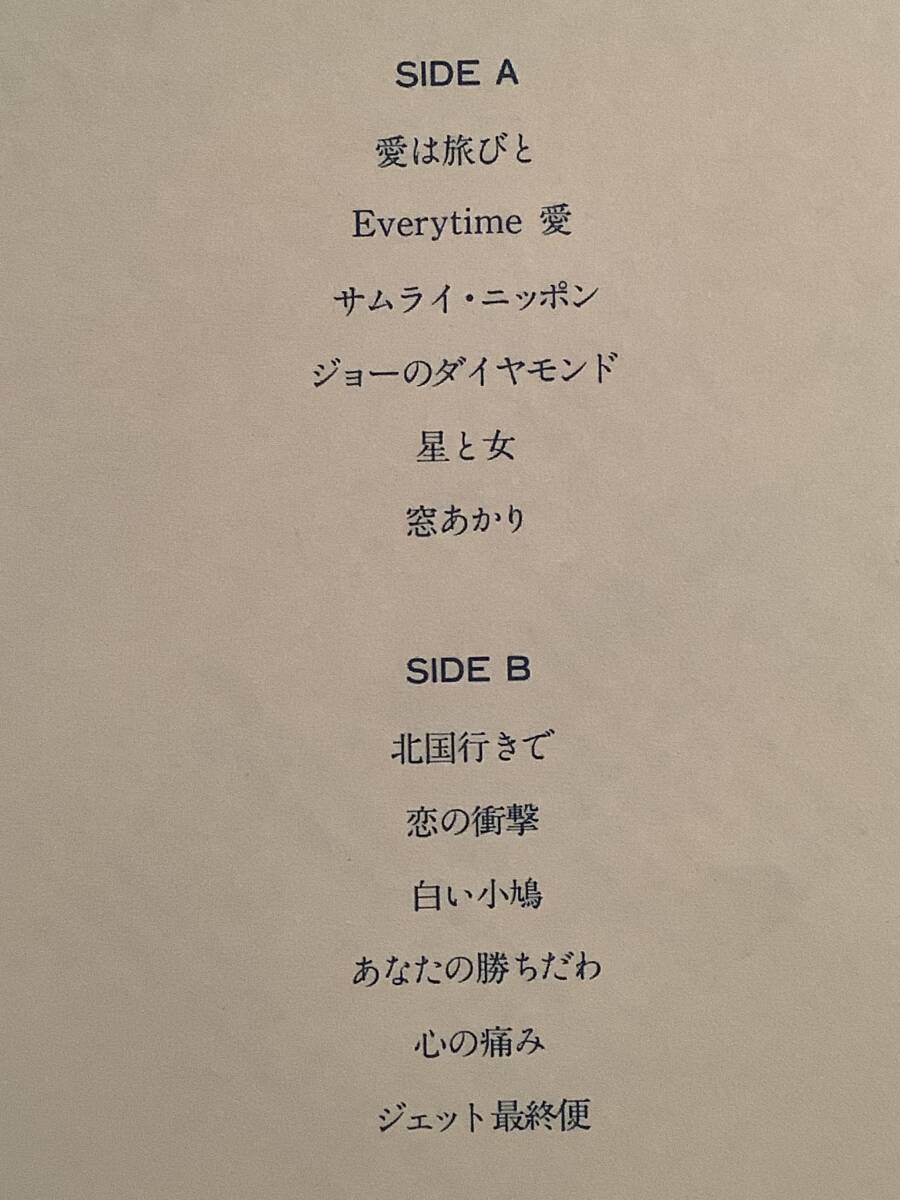 SIDE A
愛は旅びと
Everytime 愛
サムライ・ニッポン
ジョーのダイヤモンド
星と女
窓あかり
SIDE B
北国行きで
恋の衝撃
白い小鳩
あなたの勝ちだわ
心の痛み
ジェット最終便